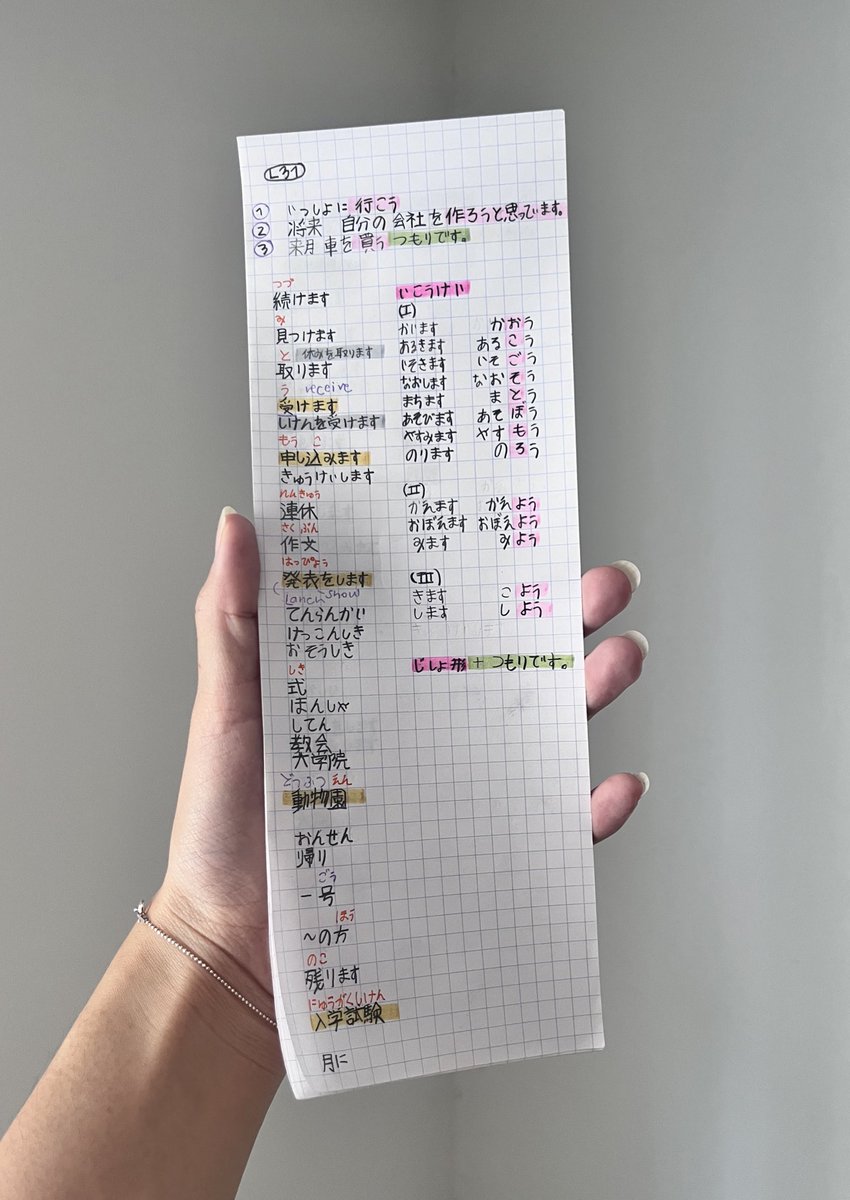 L31
① いっしょに行こう
② 将来 自分の会社を作ろうと思っています。
③ 来月 車を買う つもりです。
つづ
続けます
み
見つけます
と 休みを取ります
取ります
う receive
受けます
しけんを受けます
もう こ
申し込みます
きゅうけいします
れんきゅう
連休
さくぶん
作文
はっぴょう
発表をします
てんらんかい
けっこんしき
おそうしき
しき
式
ほんしゃ
してん
教会
大学院
どうぶつえん
動物園
おんせん
帰り
ごう
一号
ほう
〜の方
のこ
残ります
にゅうがくしけん
入学試験
月に
いこうけい
(I)
かいます かおう
あるきます あるこう
いそぎます いそごう
なおします なおそう
まちます まとう
あそびます あそぼう
やすみます やすもう
のります のろう
(II)
かえます かえよう
おぼえます おぼえよう
みます みよう
(III)
きます こよう
します しよう
じしょ形 + つもりです。